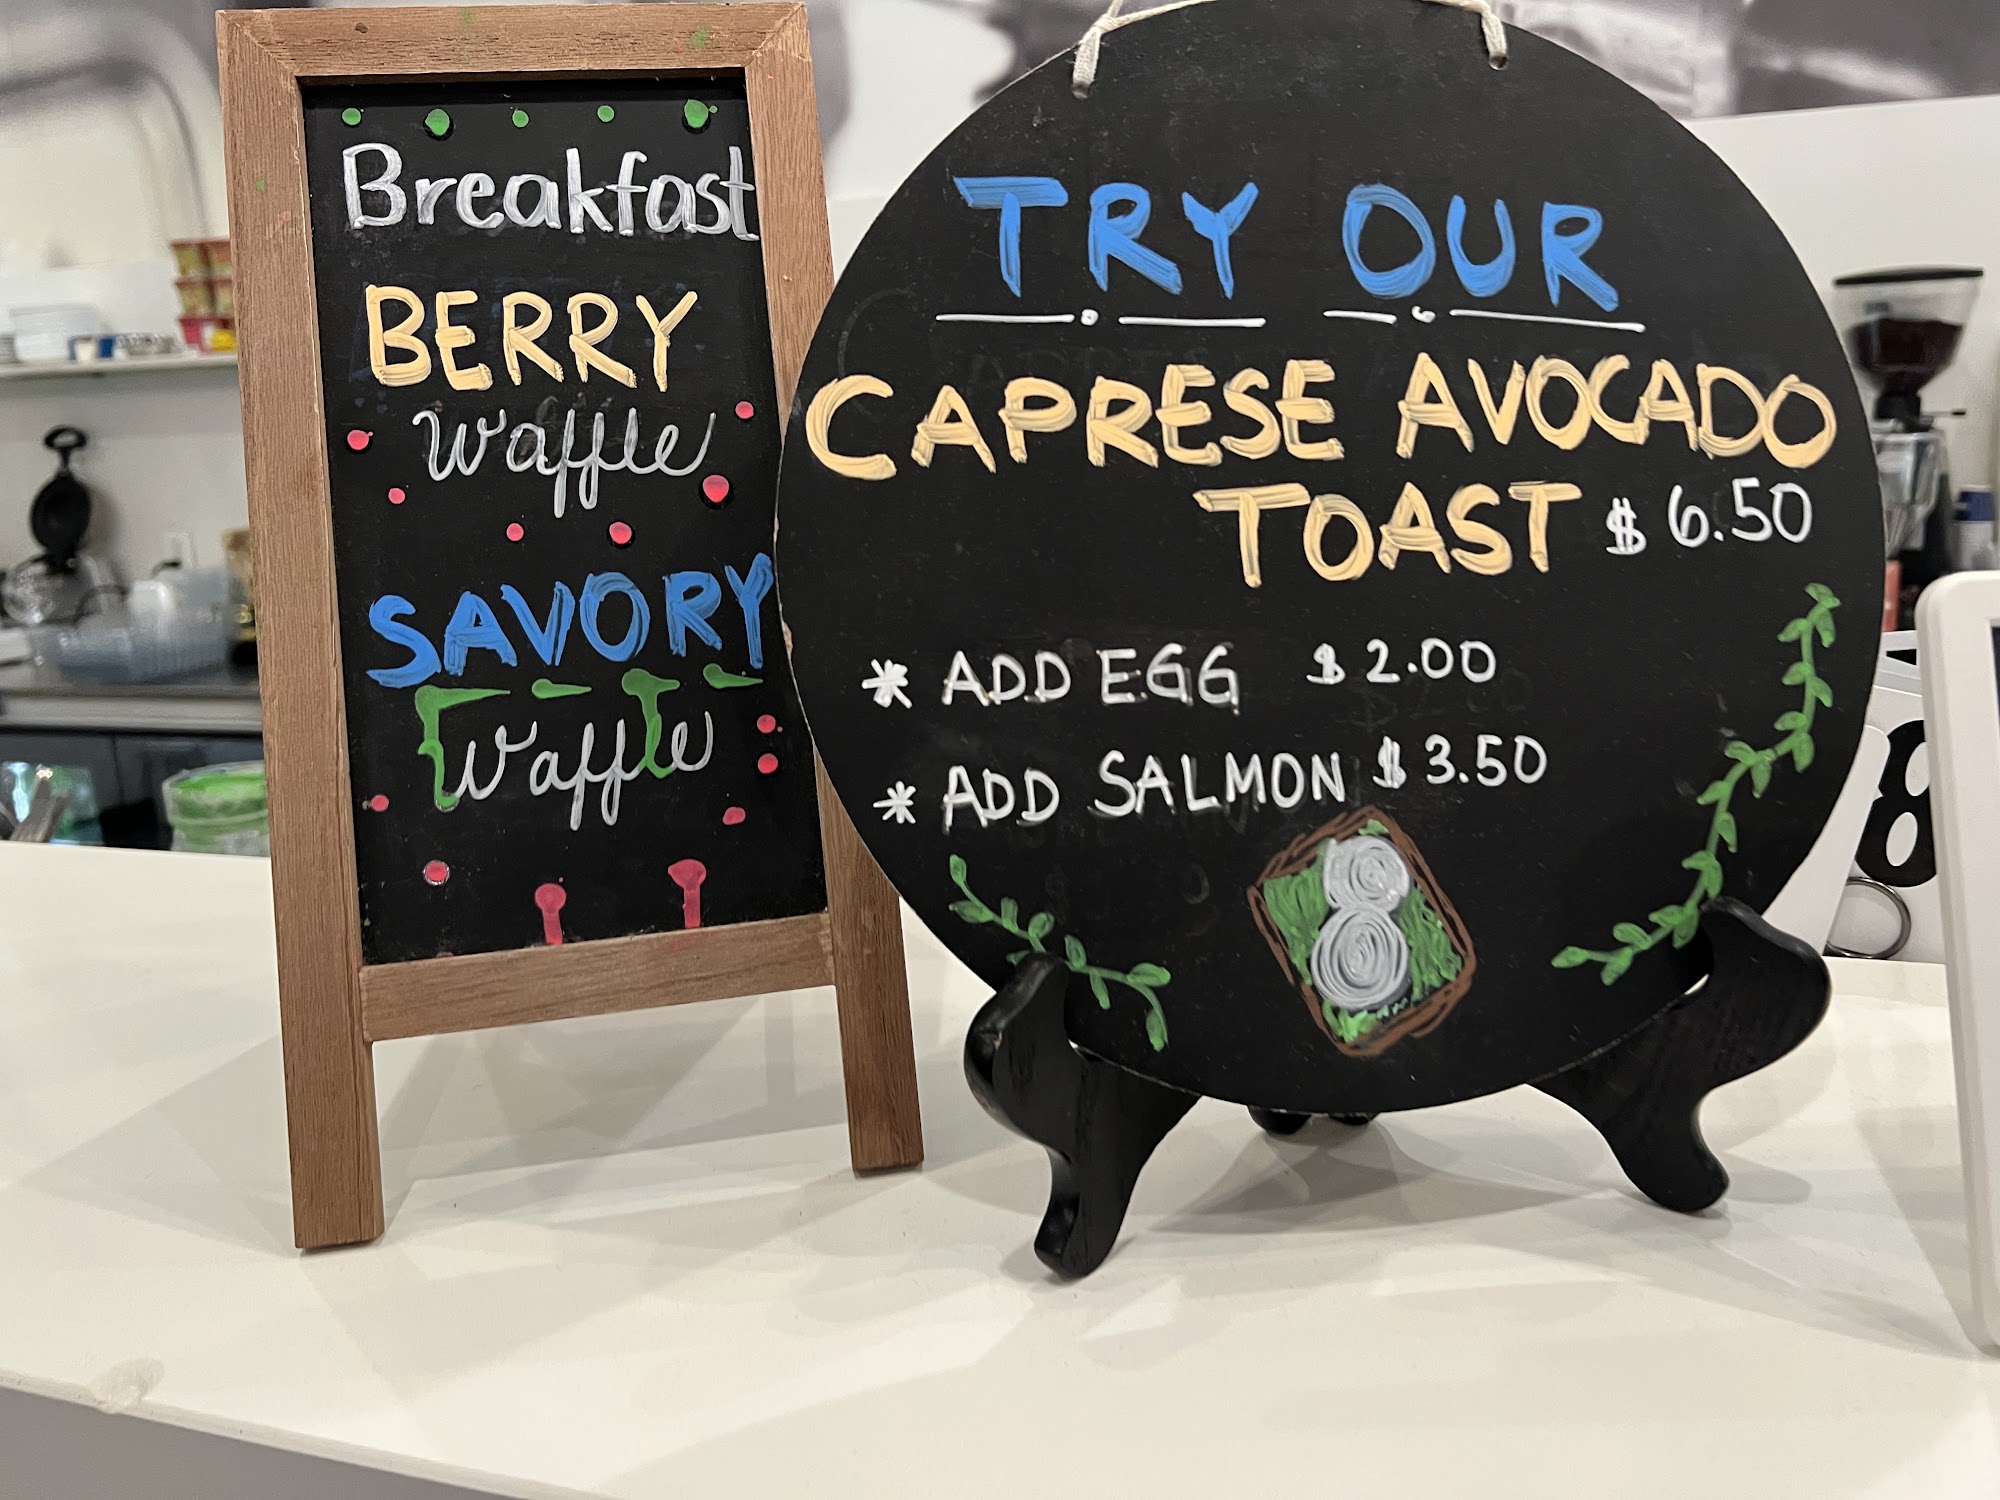 Breakfast
BERRY
Waffle
SAVORY
Waffle
TRY OUR
CAPRESE AVOCADO
TOAST $ 6.50
* ADD EGG $ 2.00
* ADD SALMON $ 3.50
8